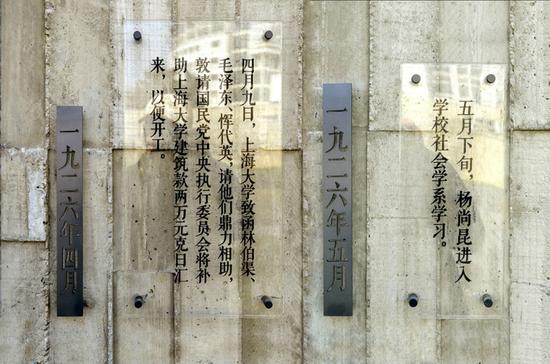 一九二六年四月
四月九日，上海大学致函林伯渠、
毛泽东、恽代英，请他们鼎力相助，
敦请国民党中央执行委员会将补
助上海大学建筑款两万元克日汇
来，以便开工。
一九二六年五月
五月下旬，杨尚昆进入
学校社会学系学习。